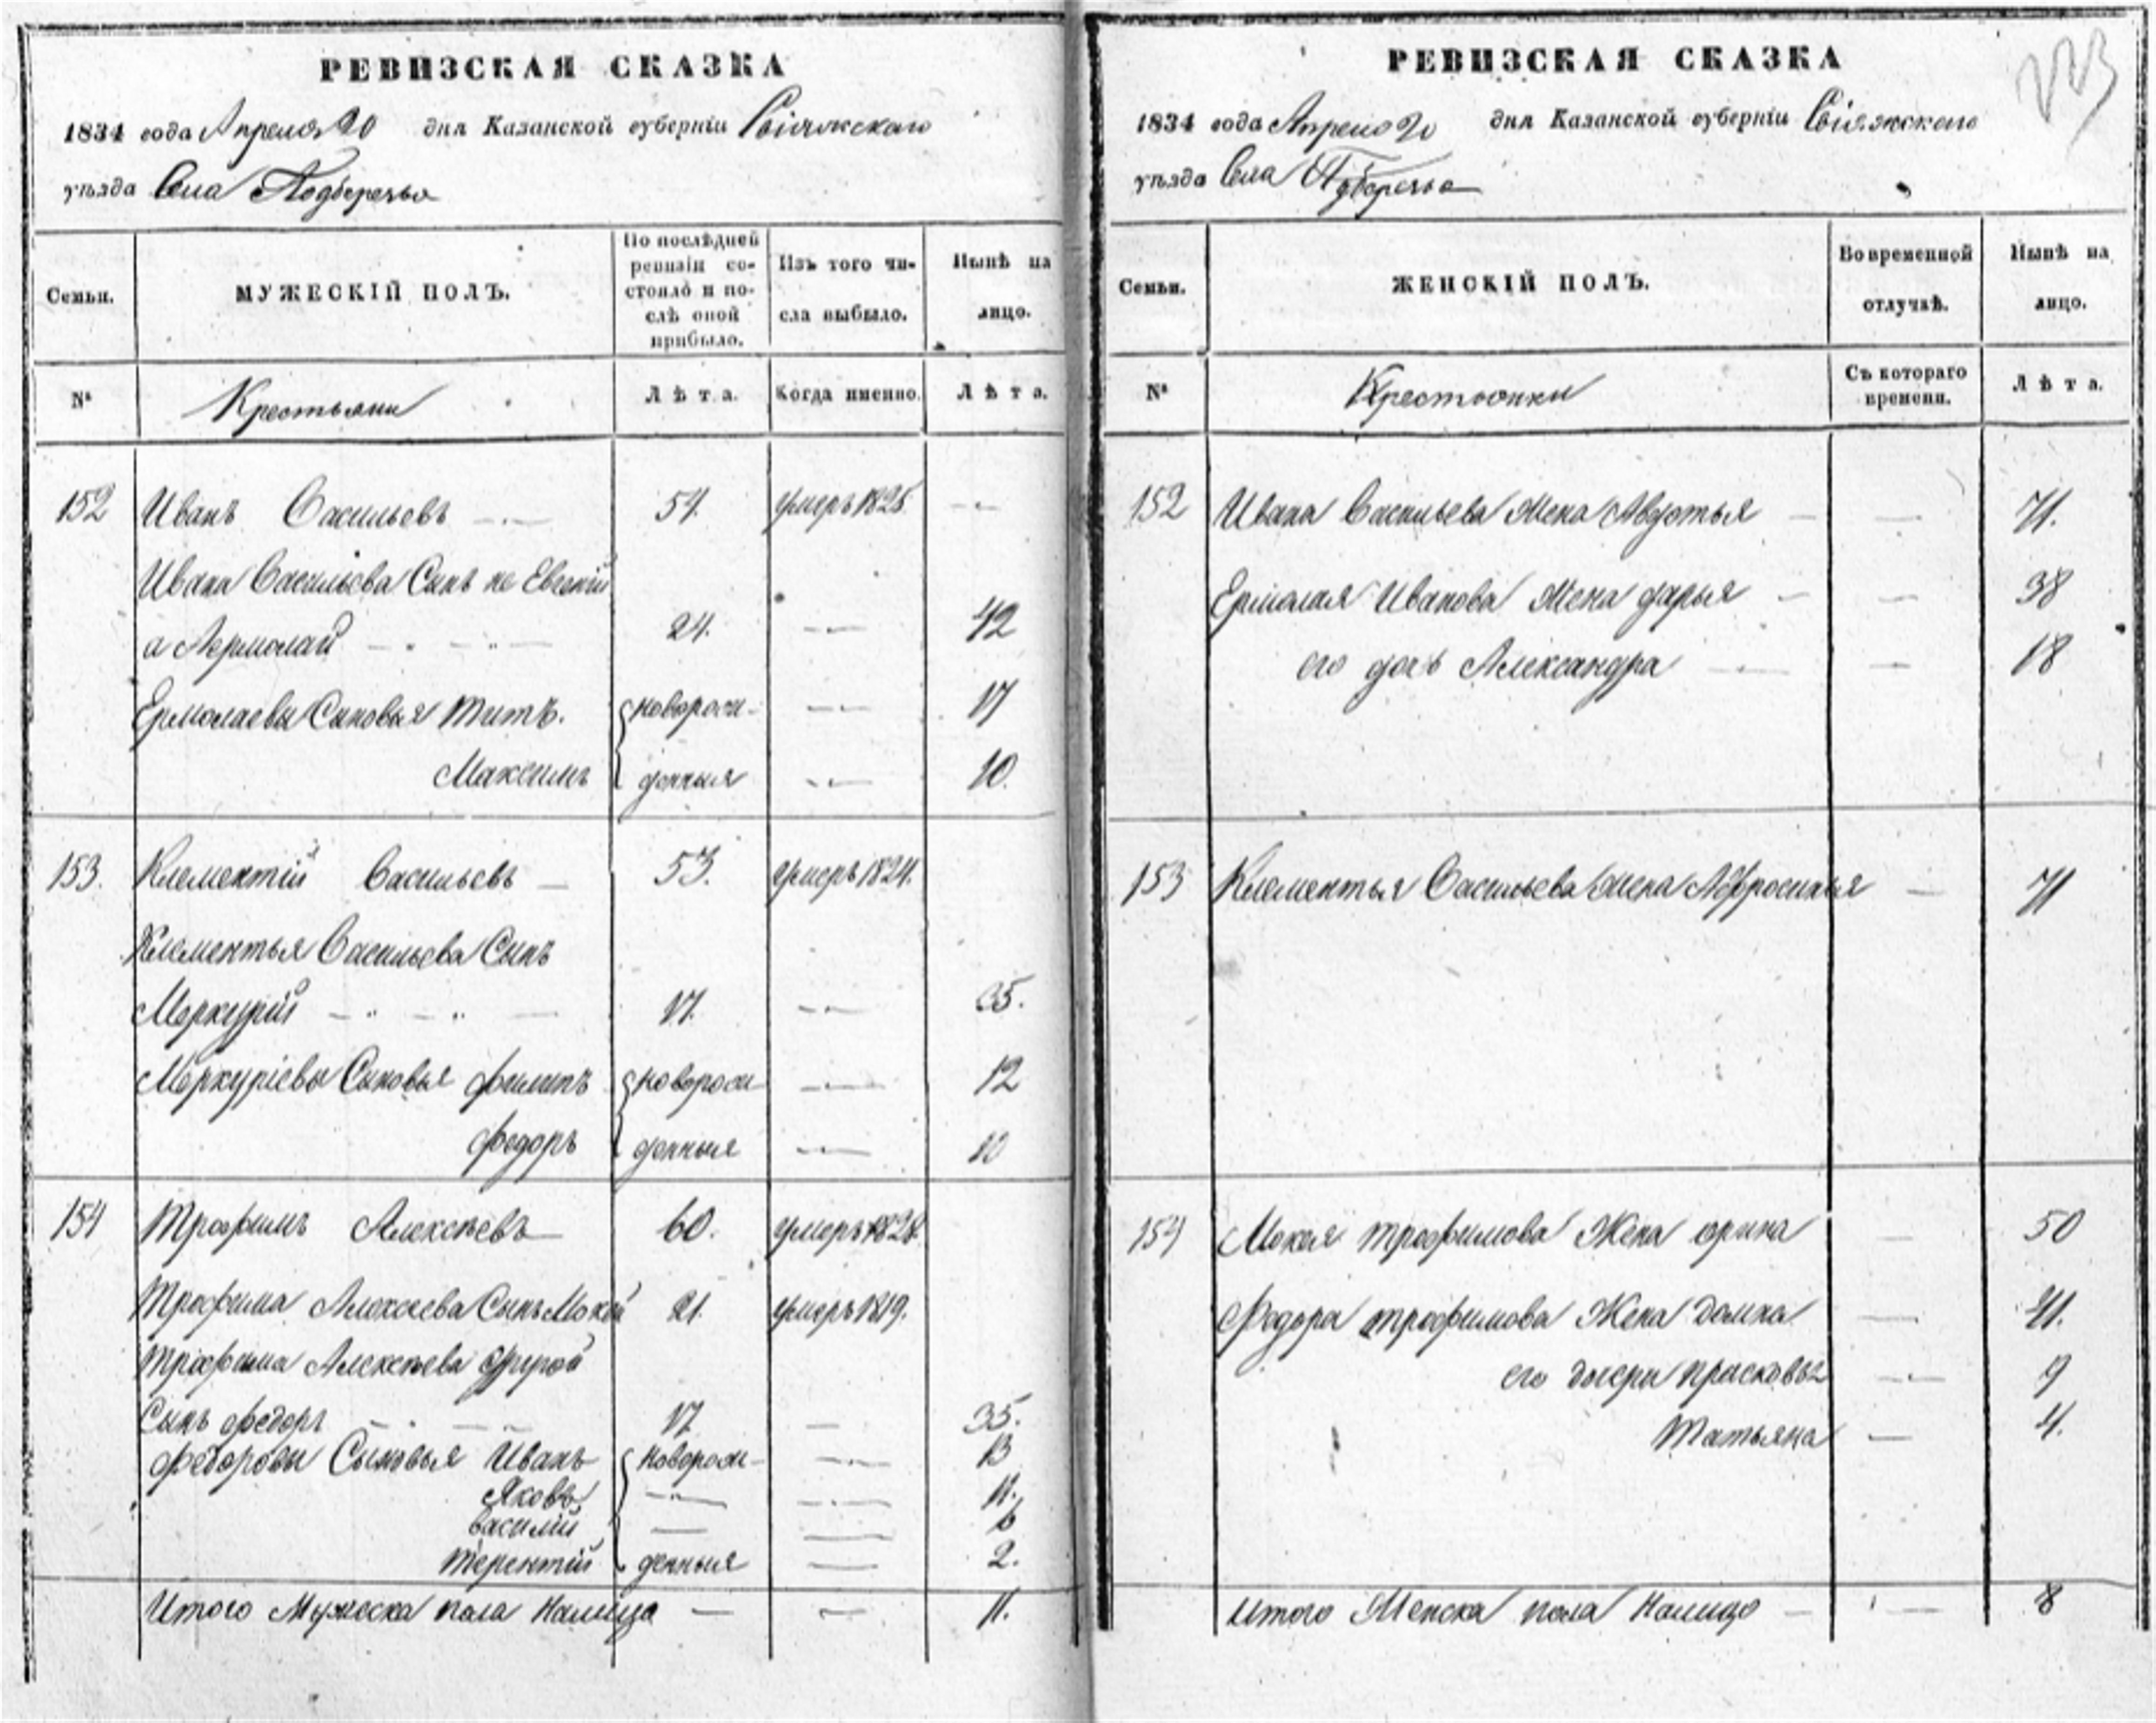 РЕВИЗСКАЯ СКАЗКА
1834 года Апреля 20 дня Казанской губерніи Свіяжскаго
уѣзда Села Подберезья
Семьи.
МУЖЕСКІЙ ПОЛЪ.
По послѣдней
ревизіи со-
стояло и по-
слѣ оной
прибыло.
Изъ того чи-
сла выбыло.
Нынѣ на
лицо.
№
Крестьяни
Лѣта.
Когда именно.
Лѣта.
152 Иванъ Васильевъ 54. умеръ 1825.
Ивана Васильева Сынъ не Евгеній
а Аермолай 24. 42
Ермолаевы Сыновья Титъ. новорож- 17
Максимъ денныя 10.
153. Клементій Васильевъ 53. умеръ 1824.
Клементья Васильева Сынъ
Меркурій 17. 35.
Меркуріевы Сыновья Филипъ новорож 12
Федоръ денныя 10
154 Трофимъ Алексѣевъ 60. умеръ 1828.
Трофима Алексѣева Сынъ Мокей 21. умеръ 1819.
Трофима Алексѣева другой
Сынъ Федоръ 17. 35.
Федоровы Сыновья Иванъ новорож- 13
Яковъ 11.
Василій 6
Терентій денныя 2.
Итого Мужеска пола Налицо 11.
РЕВИЗСКАЯ СКАЗКА
1834 года Апреля 20 дня Казанской губерніи Свіяжскаго
уѣзда Села Подберезья
Семьи.
ЖЕНСКІЙ ПОЛЪ.
Во временной
отлучкѣ.
Нынѣ на
лицо.
№
Крестьянки
Съ котораго
времени.
Лѣта.
152 Ивана Васильева Жена Авдотья 71.
Ермолая Иванова Жена Дарья 38
его дочь Александра 18
153 Клементья Васильева Жена Афросинья 71
154 Мокея Трофимова Жена Орина 50
Федора Трофимова Жена Домна 41.
его дочери Прасковья 9
Татьяна 4.
Итого Женска пола Налицо 8